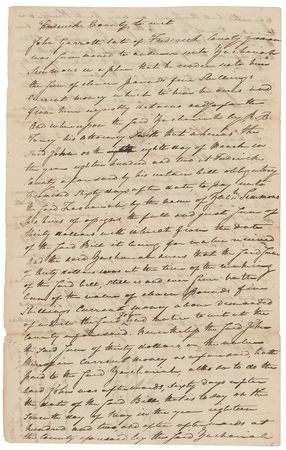 Frederick County to wit
John Garrott late of Frederick County yeoman
was summoned to answer unto Zachariah
Simmons in a plea that he render unto him
the sum of eleven pounds five Shillings
current money which to him he owes and
from him unjustly detains and
whereupon the said Zachariah by
Taney his attorney saith that whereas the
said John on the eight day of March in
the year eighteen hundred and two at Frederick
county aforesaid by his certain bill obligatory
promised Sixty days after date, to pay unto
the said Zachariah by the name of Zach: Simmons
his heirs or assigns the full and just sum of
thirty dollars with Interest from the date
of the said Bill it being for value received
and the said Zachariah avers that the said sum
of thirty dollars was at the time of the
of the said bill, still is and ever since hath
been of the value of eleven pounds five
Shillings Current money above demanded
of which the said John had notice to wit at the
county aforesaid. Nevertheless the said John
the said sum of thirty dollars or the value
thereof in current money as aforesaid, hath
not paid to the said Zachariah, altho so to do the
said John was afterwards, sixty days after
the date of the said Bill that is to say on the
Seventh day of May in the year eighteen
hundred and two and often afterwards at
the county aforesaid by the said Zachariah